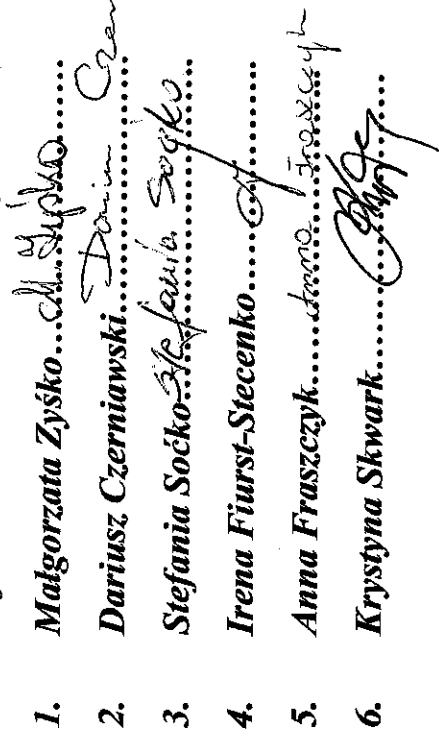 1. Małgorzata Zyśko.....M Zyśko......
2. Dariusz Czerniawski.....Dariusz Czer
3. Stefania Soćko...Stefania Soćko...
4. Irena Fiurst-Stecenko.............
5. Anna Fraszczyk......Anna Fraszczyk
6. Krystyna Skwark..................